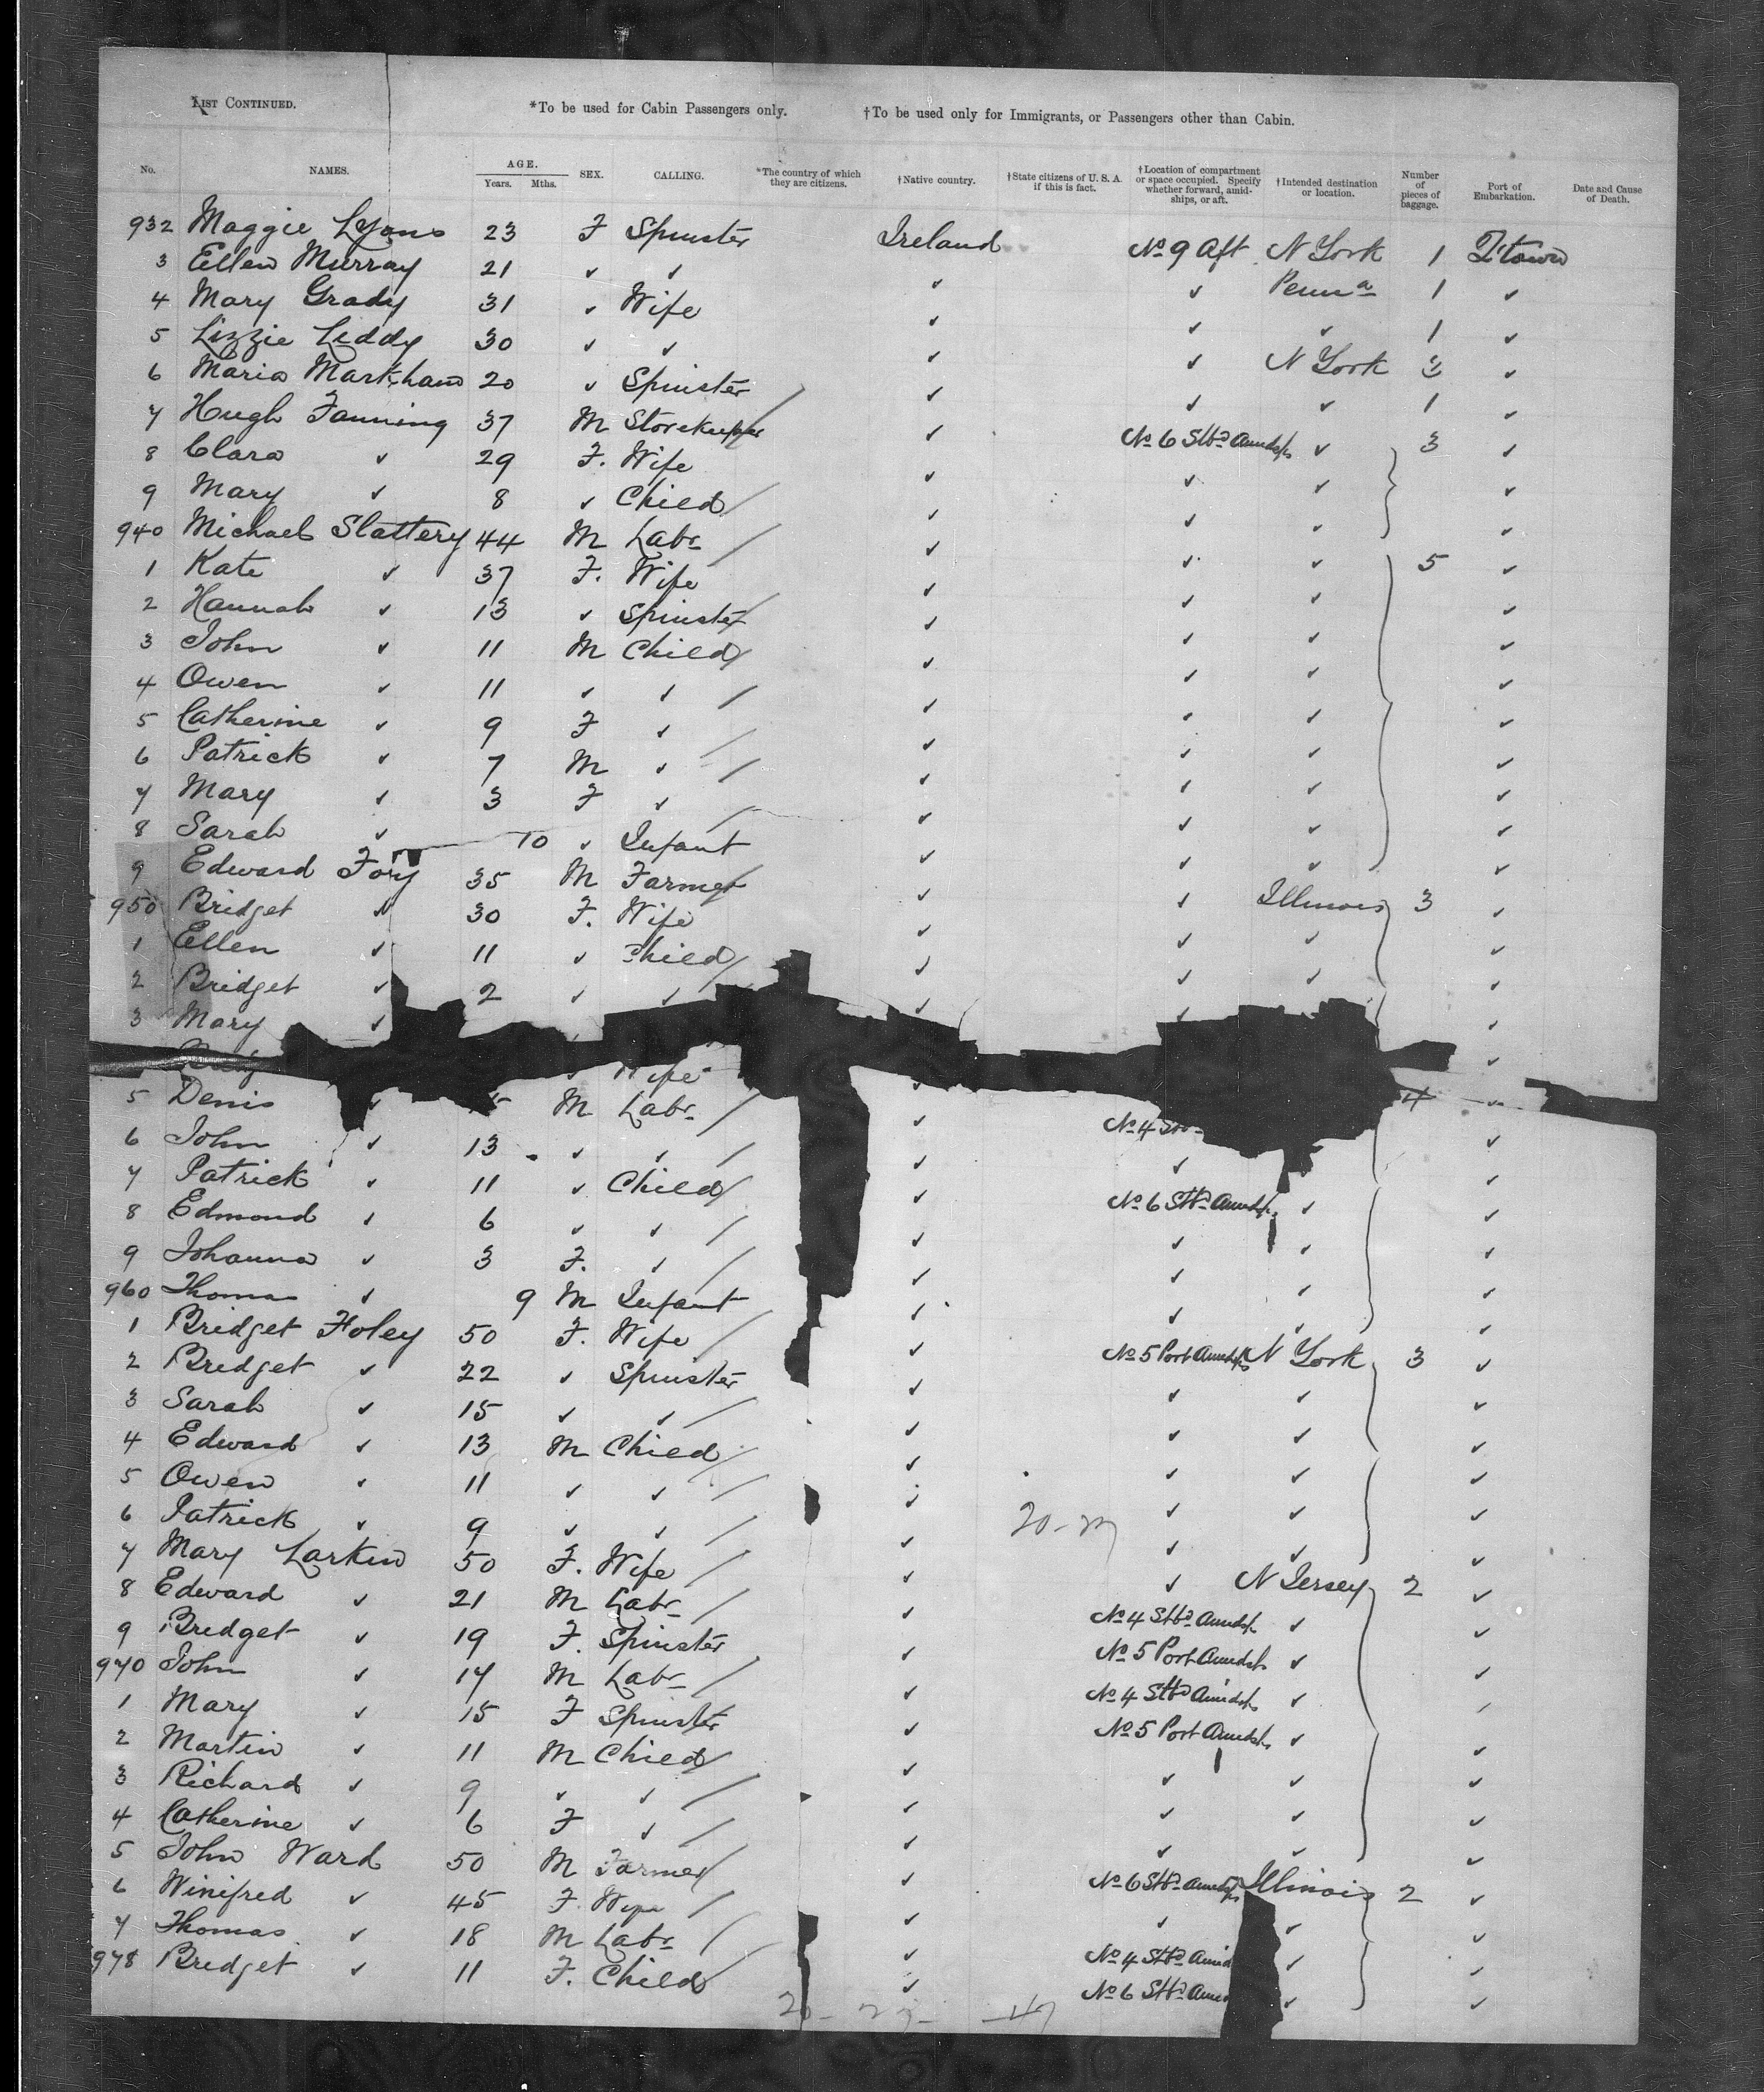 LIST CONTINUED. *To be used for Cabin Passengers only. †To be used only for Immigrants, or Passengers other than Cabin.
No. NAMES. AGE. Years. Mths. SEX. CALLING. *The country of which they are citizens. †Native country. †State citizens of U. S. A. if this is fact. †Location of compartment or space occupied. Specify whether forward, amidships, or aft. †Intended destination or location. Number of pieces of baggage. Port of Embarkation. Date and Cause of Death.
932 Maggie Lyons 23 F Spinster Ireland No 9 Aft N York 1 Q'town
3 Ellen Murray 21 ✓ ✓ ✓ ✓ Penna 1 ✓
4 Mary Grady 31 ✓ Wife ✓ ✓ ✓ 1 ✓
5 Lizzie Liddy 30 ✓ ✓ ✓ ✓ N York ✓
6 Maria Markham 20 ✓ Spinster ✓ ✓ ✓ 1 ✓
7 Hugh Fanning 37 M Storekeeper ✓ No 6 Stbd Amdsps ✓ 3 ✓
8 Clara ✓ 29 F. Wife ✓ ✓ ✓ ✓
9 Mary ✓ 8 ✓ Child ✓ ✓ ✓ ✓
940 Michael Slattery 44 M Labr ✓ ✓ ✓ 5 ✓
1 Kate ✓ 37 F. Wife ✓ ✓ ✓ ✓
2 Hannah ✓ 13 ✓ Spinster ✓ ✓ ✓ ✓
3 John ✓ 11 M Child ✓ ✓ ✓ ✓
4 Owen ✓ 11 ✓ ✓ ✓ ✓ ✓ ✓
5 Catherine ✓ 9 F ✓ ✓ ✓ ✓ ✓
6 Patrick ✓ 7 M ✓ ✓ ✓ ✓ ✓
7 Mary ✓ 3 F ✓ ✓ ✓ ✓ ✓
8 Sarah ✓ 10 ✓ Infant ✓ ✓ ✓ ✓
9 Edward Foy 35 M Farmer ✓ ✓ Illinois 3 ✓
950 Bridget ✓ 30 F. Wife ✓ ✓ ✓ ✓
1 Ellen ✓ 11 ✓ Child ✓ ✓ ✓ ✓
2 Bridget ✓ 2 ✓ ✓ ✓ ✓ ✓
3 Mary ✓
✓ Wife ✓
5 Denis ✓ M Labr ✓ No 4 4 ✓
6 John ✓ 13 ✓ ✓ ✓ ✓ ✓
7 Patrick ✓ 11 ✓ Child ✓ No 6 Stbd Amdsps ✓ ✓
8 Edmond ✓ 6 ✓ ✓ ✓ ✓ ✓ ✓
9 Johanna ✓ 3 F. ✓ ✓ ✓ ✓ ✓
960 Thomas ✓ 9 M Infant ✓ ✓ ✓ ✓
1 Bridget Foley 50 F. Wife ✓ No 5 Port Amdsps N York 3 ✓
2 Bridget ✓ 22 ✓ Spinster ✓ ✓ ✓ ✓
3 Sarah ✓ 15 ✓ ✓ ✓ ✓ ✓ ✓
4 Edward ✓ 13 M Child ✓ ✓ ✓ ✓
5 Owen ✓ 11 ✓ ✓ ✓ ✓ ✓ ✓
6 Patrick ✓ 9 ✓ ✓ ✓ ✓ ✓ ✓
7 Mary Larkin 50 F. Wife ✓ ✓ N Jersey 2 ✓
8 Edward ✓ 21 M Labr ✓ No 4 Stbd Amdsps ✓ ✓
9 Bridget ✓ 19 F. Spinster ✓ No 5 Port Amdsps ✓ ✓
970 John ✓ 17 M Labr ✓ No 4 Stbd Amdsps ✓ ✓
1 Mary ✓ 15 F Spinster ✓ No 5 Port Amdsps ✓ ✓
2 Martin ✓ 11 M Child ✓ ✓ ✓ ✓
3 Richard ✓ 9 ✓ ✓ ✓ ✓ ✓ ✓
4 Catherine ✓ 6 F ✓ ✓ ✓ ✓ ✓
5 John Ward 50 M Farmer ✓ No 6 Stbd Amdsps Illinois 2 ✓
6 Winifred ✓ 45 F. Wife ✓ ✓ ✓ ✓
7 Thomas ✓ 18 M Labr ✓ No 4 Stbd Amid ✓ ✓
978 Bridget ✓ 11 F. Child ✓ No 6 Stbd ✓ ✓